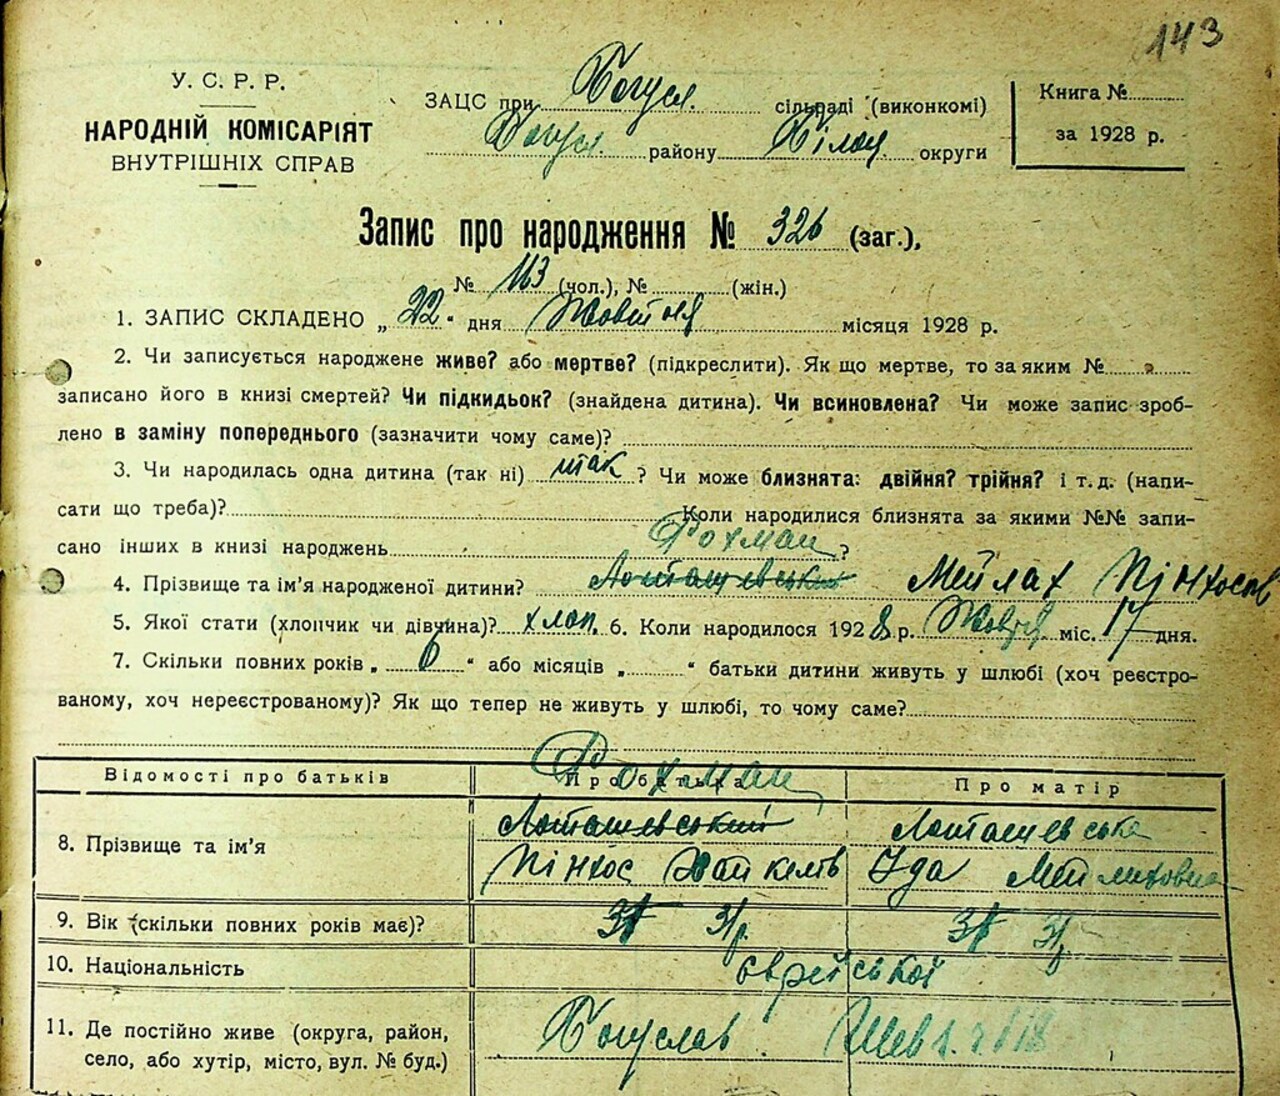 143
У. С. Р. Р.
НАРОДНІЙ КОМІСАРІЯТ
ВНУТРІШНІХ СПРАВ
ЗАЦС при Богусл. сільраді (виконкомі)
Богусл. району Білоц. округи
Книга №
за 1928 р.
Запис про народження № 326 (заг.),
№ 163 (чол.), № (жін.)
1. ЗАПИС СКЛАДЕНО „22" дня Жовтня місяця 1928 р.
2. Чи записується народжене живе? або мертве? (підкреслити). Як що мертве, то за яким №
записано його в книзі смертей? Чи підкидьок? (знайдена дитина). Чи всиновлена? Чи може запис зроб-
лено в заміну попереднього (зазначити чому саме)?
3. Чи народилась одна дитина (так ні) так ? Чи може близнята: двійня? трійня? і т. д. (напи-
сати що треба)? Коли народилися близнята за якими №№ запи-
сано інших в книзі народжень ?
Рохман
4. Прізвище та ім'я народженої дитини? Лоташевський Мейлах Пінхосов
5. Якої статі (хлопчик чи дівчина)? хлоп. 6. Коли народилося 1928 р. Жовтня міс. 17 дня.
7. Скільки повних років „6" або місяців „ " батьки дитини живуть у шлюбі (хоч реєстро-
ваному, хоч нереєстрованому)? Як що тепер не живуть у шлюбі, то чому саме?
Відомості про батьків Про батька Про матір
Рохман
8. Прізвище та ім'я Лоташевський Лоташевська
Пінхос Хайкелів Іда Мейлиховна
9. Вік (скільки повних років має)? 31 р. 31 р.
10. Національність Єврейської
11. Де постійно живе (округа, район, Богуслав Шевч.
село, або хутір, місто, вул. № буд.)